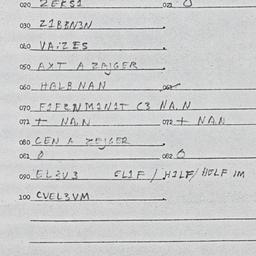 020 ZEKS1 021 0
030 Z1BBN3N
040 VA:ZES
050 AXT A ZAJGER
060 HALB NAN 061
070 F1FRNM1N1T C3 NA.N
071 + NA.N 072 + NAN
080 CEN A ZEJGER
081 0 082 0
090 EL2V3 EL1F / H1LF/ HOLF IM
100 CVEL3VM